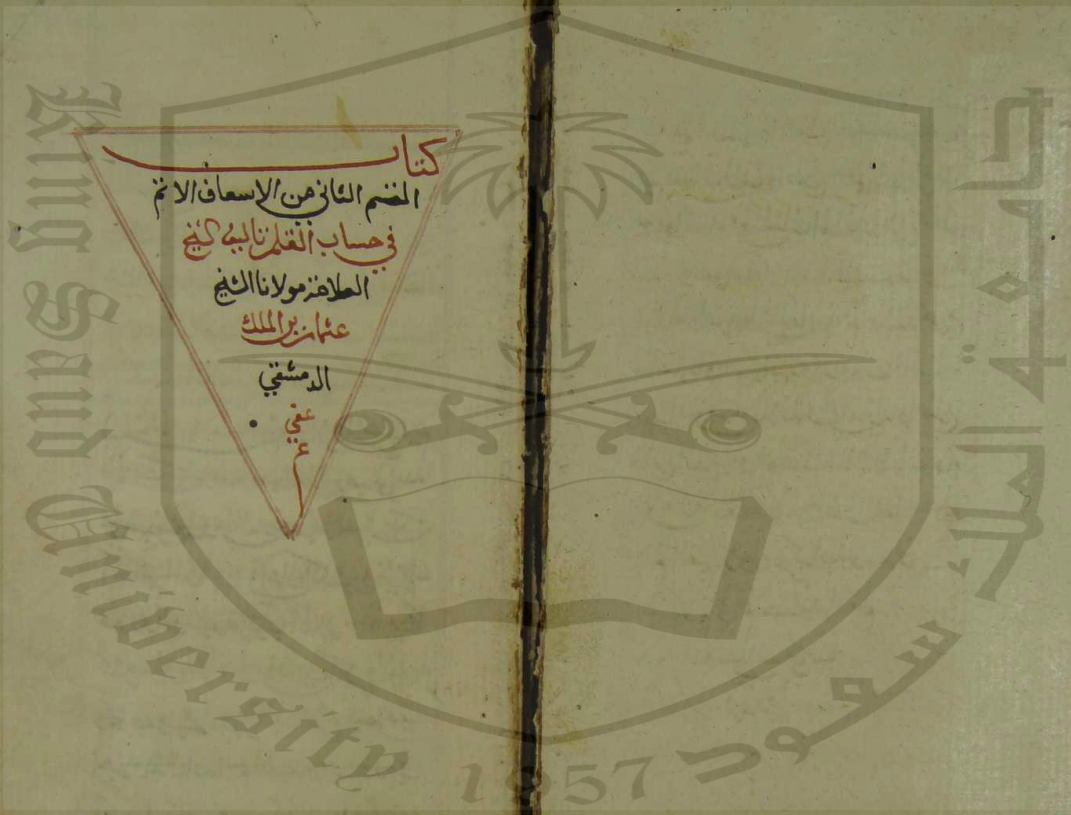 كتاب
القسم الثاني من الاسعاف الاتم
في حساب القلم تاليف الشيخ
العلامة مولانا الشيخ
عثمان بن الملك
الدمشقي
عفي
ع
King Saud University 1957
جامعة الملك سعود